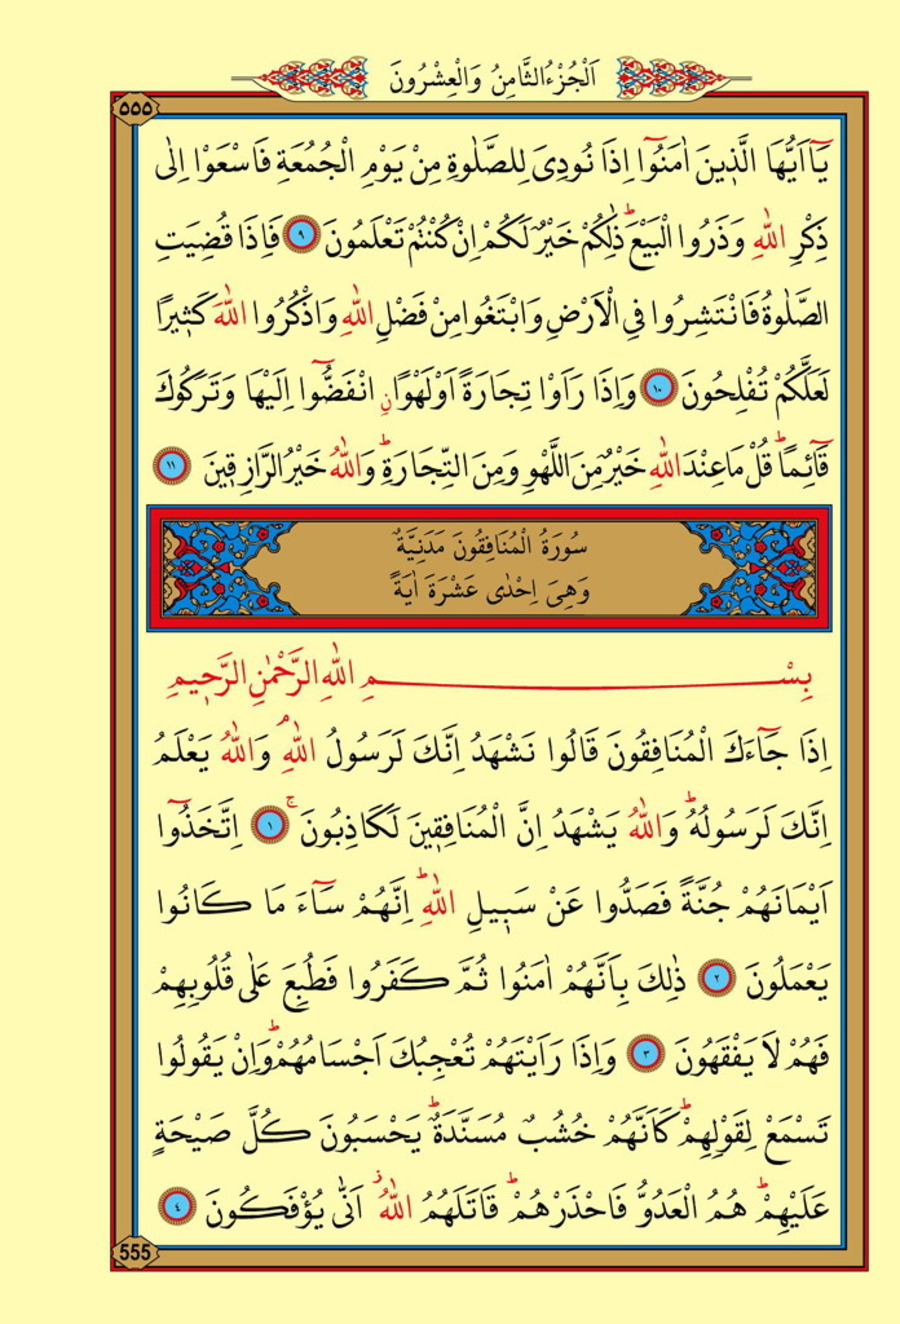 اَلْجُزْءُ الثَّامِنُ وَالْعِشْرُونَ
٥٥٥
يَٓا اَيُّهَا الَّذ۪ينَ اٰمَنُٓوا اِذَا نُودِيَ لِلصَّلٰوةِ مِنْ يَوْمِ الْجُمُعَةِ فَاسْعَوْا اِلٰى
ذِكْرِ اللّٰهِ وَذَرُوا الْبَيْعَۜ ذٰلِكُمْ خَيْرٌ لَكُمْ اِنْ كُنْتُمْ تَعْلَمُونَ ٩ فَاِذَا قُضِيَتِ
الصَّلٰوةُ فَانْتَشِرُوا فِي الْاَرْضِ وَابْتَغُوا مِنْ فَضْلِ اللّٰهِ وَاذْكُرُوا اللّٰهَ كَث۪يرًا
لَعَلَّكُمْ تُفْلِحُونَ ١٠ وَاِذَا رَاَوْا تِجَارَةً اَوْ لَهْوًاۨ انْفَضُّٓوا اِلَيْهَا وَتَرَكُوكَ
قَٓائِمًاۜ قُلْ مَا عِنْدَ اللّٰهِ خَيْرٌ مِنَ اللَّهْوِ وَمِنَ التِّجَارَةِۜ وَاللّٰهُ خَيْرُ الرَّازِق۪ينَ ١١
سُورَةُ الْمُنَافِقُونَ مَدَنِيَّةٌ
وَهِيَ اِحْدٰى عَشْرَةَ اٰيَةً
بِسْمِ اللّٰهِ الرَّحْمٰنِ الرَّح۪يمِ
اِذَا جَٓاءَكَ الْمُنَافِقُونَ قَالُوا نَشْهَدُ اِنَّكَ لَرَسُولُ اللّٰهِۢ وَاللّٰهُ يَعْلَمُ
اِنَّكَ لَرَسُولُهُۜ وَاللّٰهُ يَشْهَدُ اِنَّ الْمُنَافِق۪ينَ لَكَاذِبُونَۚ ١ اِتَّخَذُٓوا
اَيْمَانَهُمْ جُنَّةً فَصَدُّوا عَنْ سَب۪يلِ اللّٰهِۜ اِنَّهُمْ سَٓاءَ مَا كَانُوا
يَعْمَلُونَ ٢ ذٰلِكَ بِاَنَّهُمْ اٰمَنُوا ثُمَّ كَفَرُوا فَطُبِعَ عَلٰى قُلُوبِهِمْ
فَهُمْ لَا يَفْقَهُونَ ٣ وَاِذَا رَاَيْتَهُمْ تُعْجِبُكَ اَجْسَامُهُمْۜ وَاِنْ يَقُولُوا
تَسْمَعْ لِقَوْلِهِمْۜ كَاَنَّهُمْ خُشُبٌ مُسَنَّدَةٌۜ يَحْسَبُونَ كُلَّ صَيْحَةٍ
عَلَيْهِمْۜ هُمُ الْعَدُوُّ فَاحْذَرْهُمْۜ قَاتَلَهُمُ اللّٰهُۘ اَنّٰى يُؤْفَكُونَ ٤
555